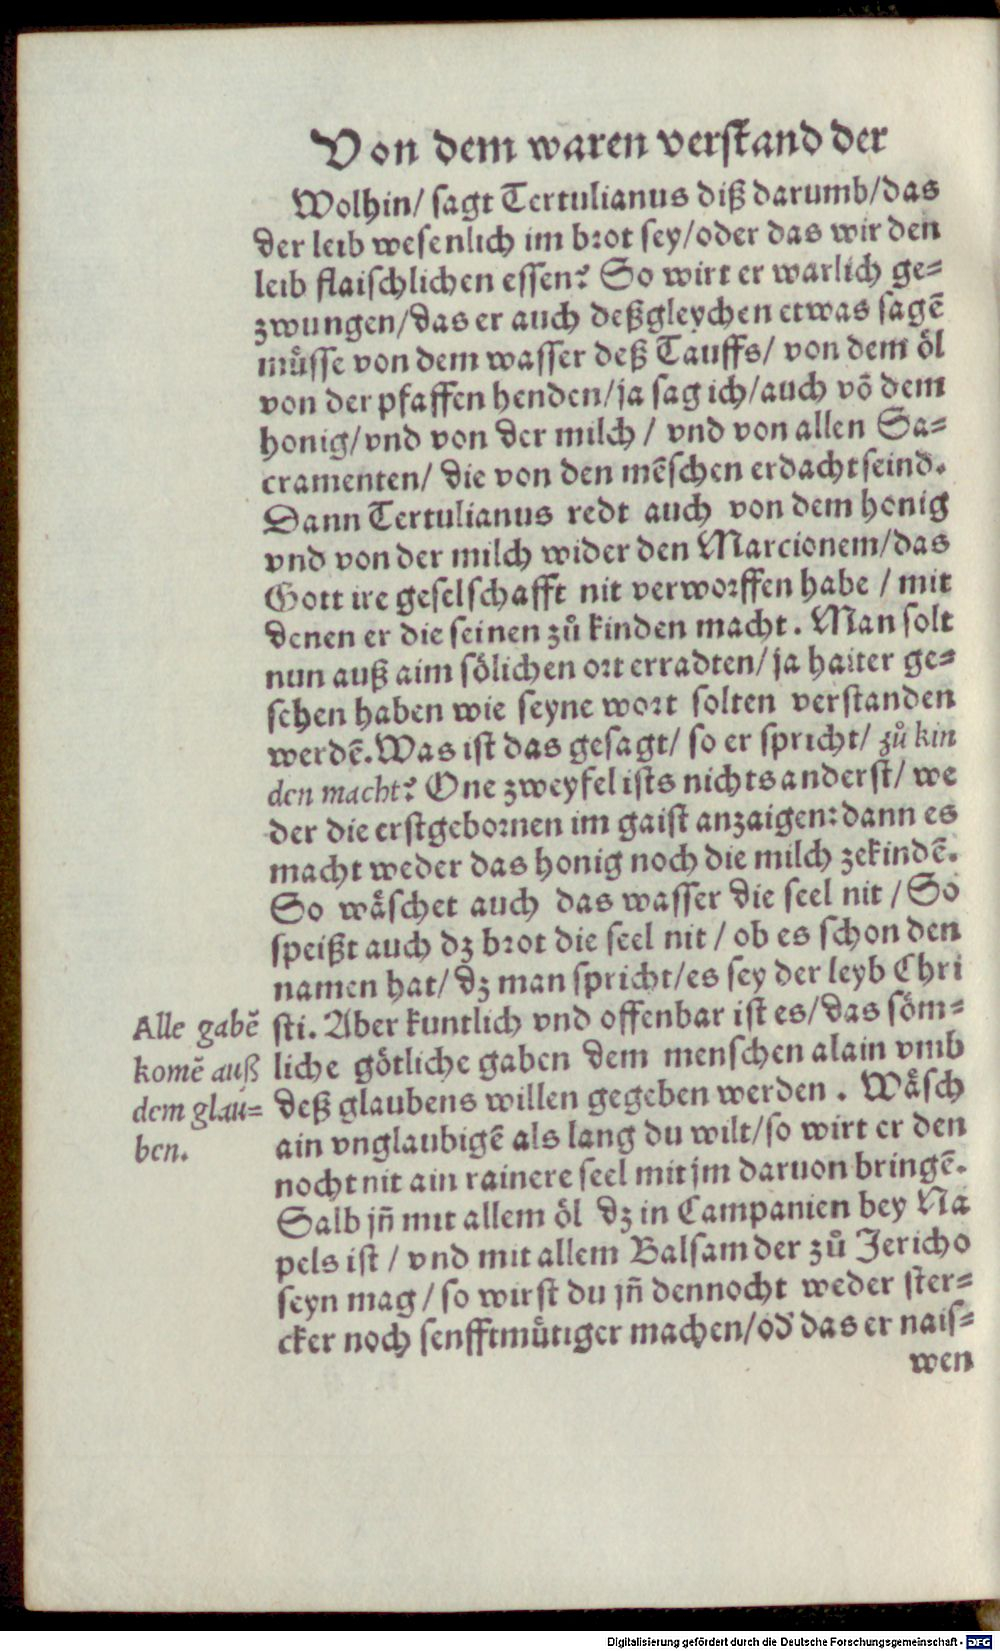 Von dem waren verstand der
Wolhin/ sagt Tertulianus diß darumb/das
der leib wesenlich im brot sey/oder das wir den
leib flaischlichen essen? So wirt er warlich ge=
zwungen/das er auch deßgleychen etwas sagē
muͤsse von dem wasser deß Tauffs/ von dem oͤl
von der pfaffen henden/ja sag ich/auch vō dem
honig/vnd von der milch / vnd von allen Sa=
cramenten/ die von den mēschen erdacht seind.
Dann Tertulianus redt auch von dem honig
vnd von der milch wider den Marcionem/das
Gott ire geselschafft nit verworffen habe / mit
denen er die seinen zuͦ kinden macht. Man solt
nun auß aim soͤlichen ort erradten/ ja haiter ge=
sehen haben wie seyne wort solten verstanden
werdē. Was ist das gesagt/ so er spricht/ zuͦ kin
den macht? One zweyfel ists nichts anderst/ we
der die erstgebornen im gaist anzaigen: dann es
macht weder das honig noch die milch zekindē.
So waͤschet auch das wasser die seel nit / So
speißt auch dz brot die seel nit / ob es schon den
namen hat/ dz man spricht/es sey der leyb Chri
sti. Aber kuntlich vnd offenbar ist es/das soͤm=
liche goͤtliche gaben dem menschen alain vmb
deß glaubens willen gegeben werden . Waͤsch
ain vnglaubigē als lang du wilt/so wirt er den
nocht nit ain rainere seel mit jm daruon bringē.
Salb jn̄ mit allem oͤl dz in Campanien bey Na
pels ist / vnd mit allem Balsam der zuͦ Jericho
seyn mag / so wirst du jn̄ dennocht weder ster=
cker noch senfftmuͤtiger machen/od̕ das er nais=
wen
Alle gabē
komē auß
dem glau=
ben.
Digitalisierung gefördert durch die Deutsche Forschungsgemeinschaft - DFG